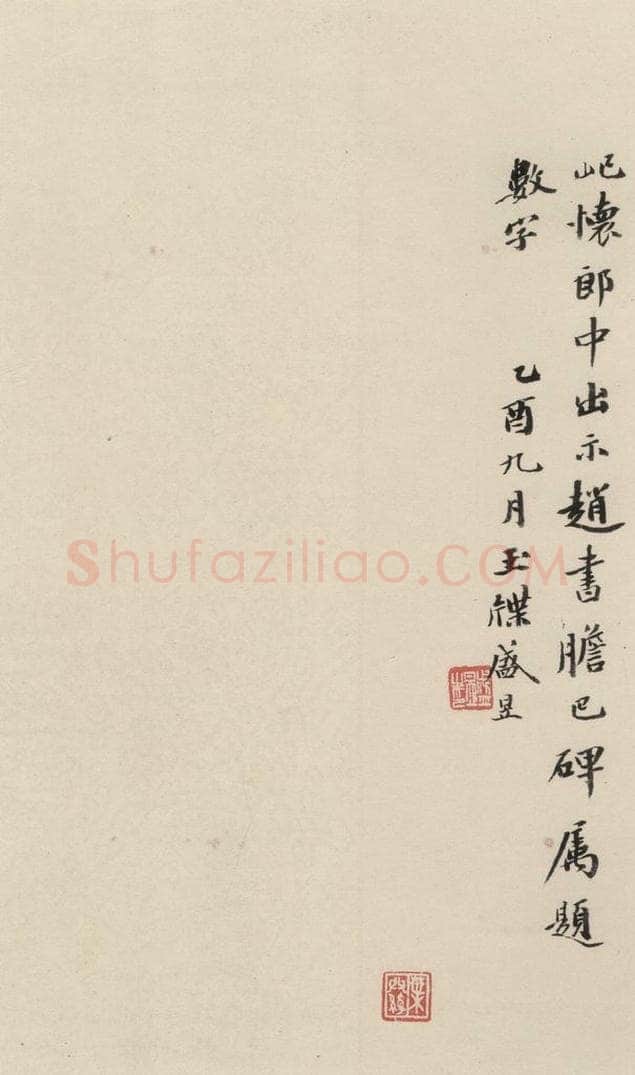 屺懷郎中出示趙書膽巴碑属題
數字
乙酉九月玉牒盛昱
Shufaziliao.COM